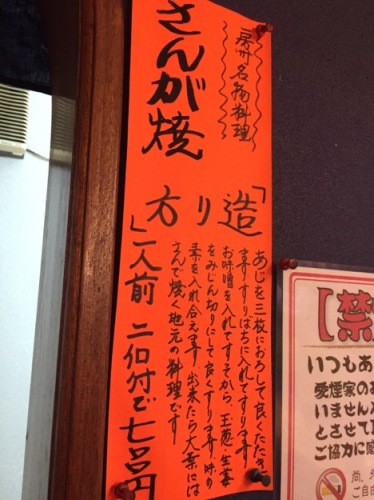 房州名物料理
さんが焼
「造り方」
あじを三枚におろして良くたたき
ます すりばちに入れてすります
お味噌を入れてすってから、玉葱・生姜
をみじん切りにして良くすります。味の
素を入れ合えます 出来たら大葉には
さんで焼く地元の料理です
一人前
【禁
いつもあ
愛煙家のお
いません
とさせて
ご協力に感
尚、
ご自